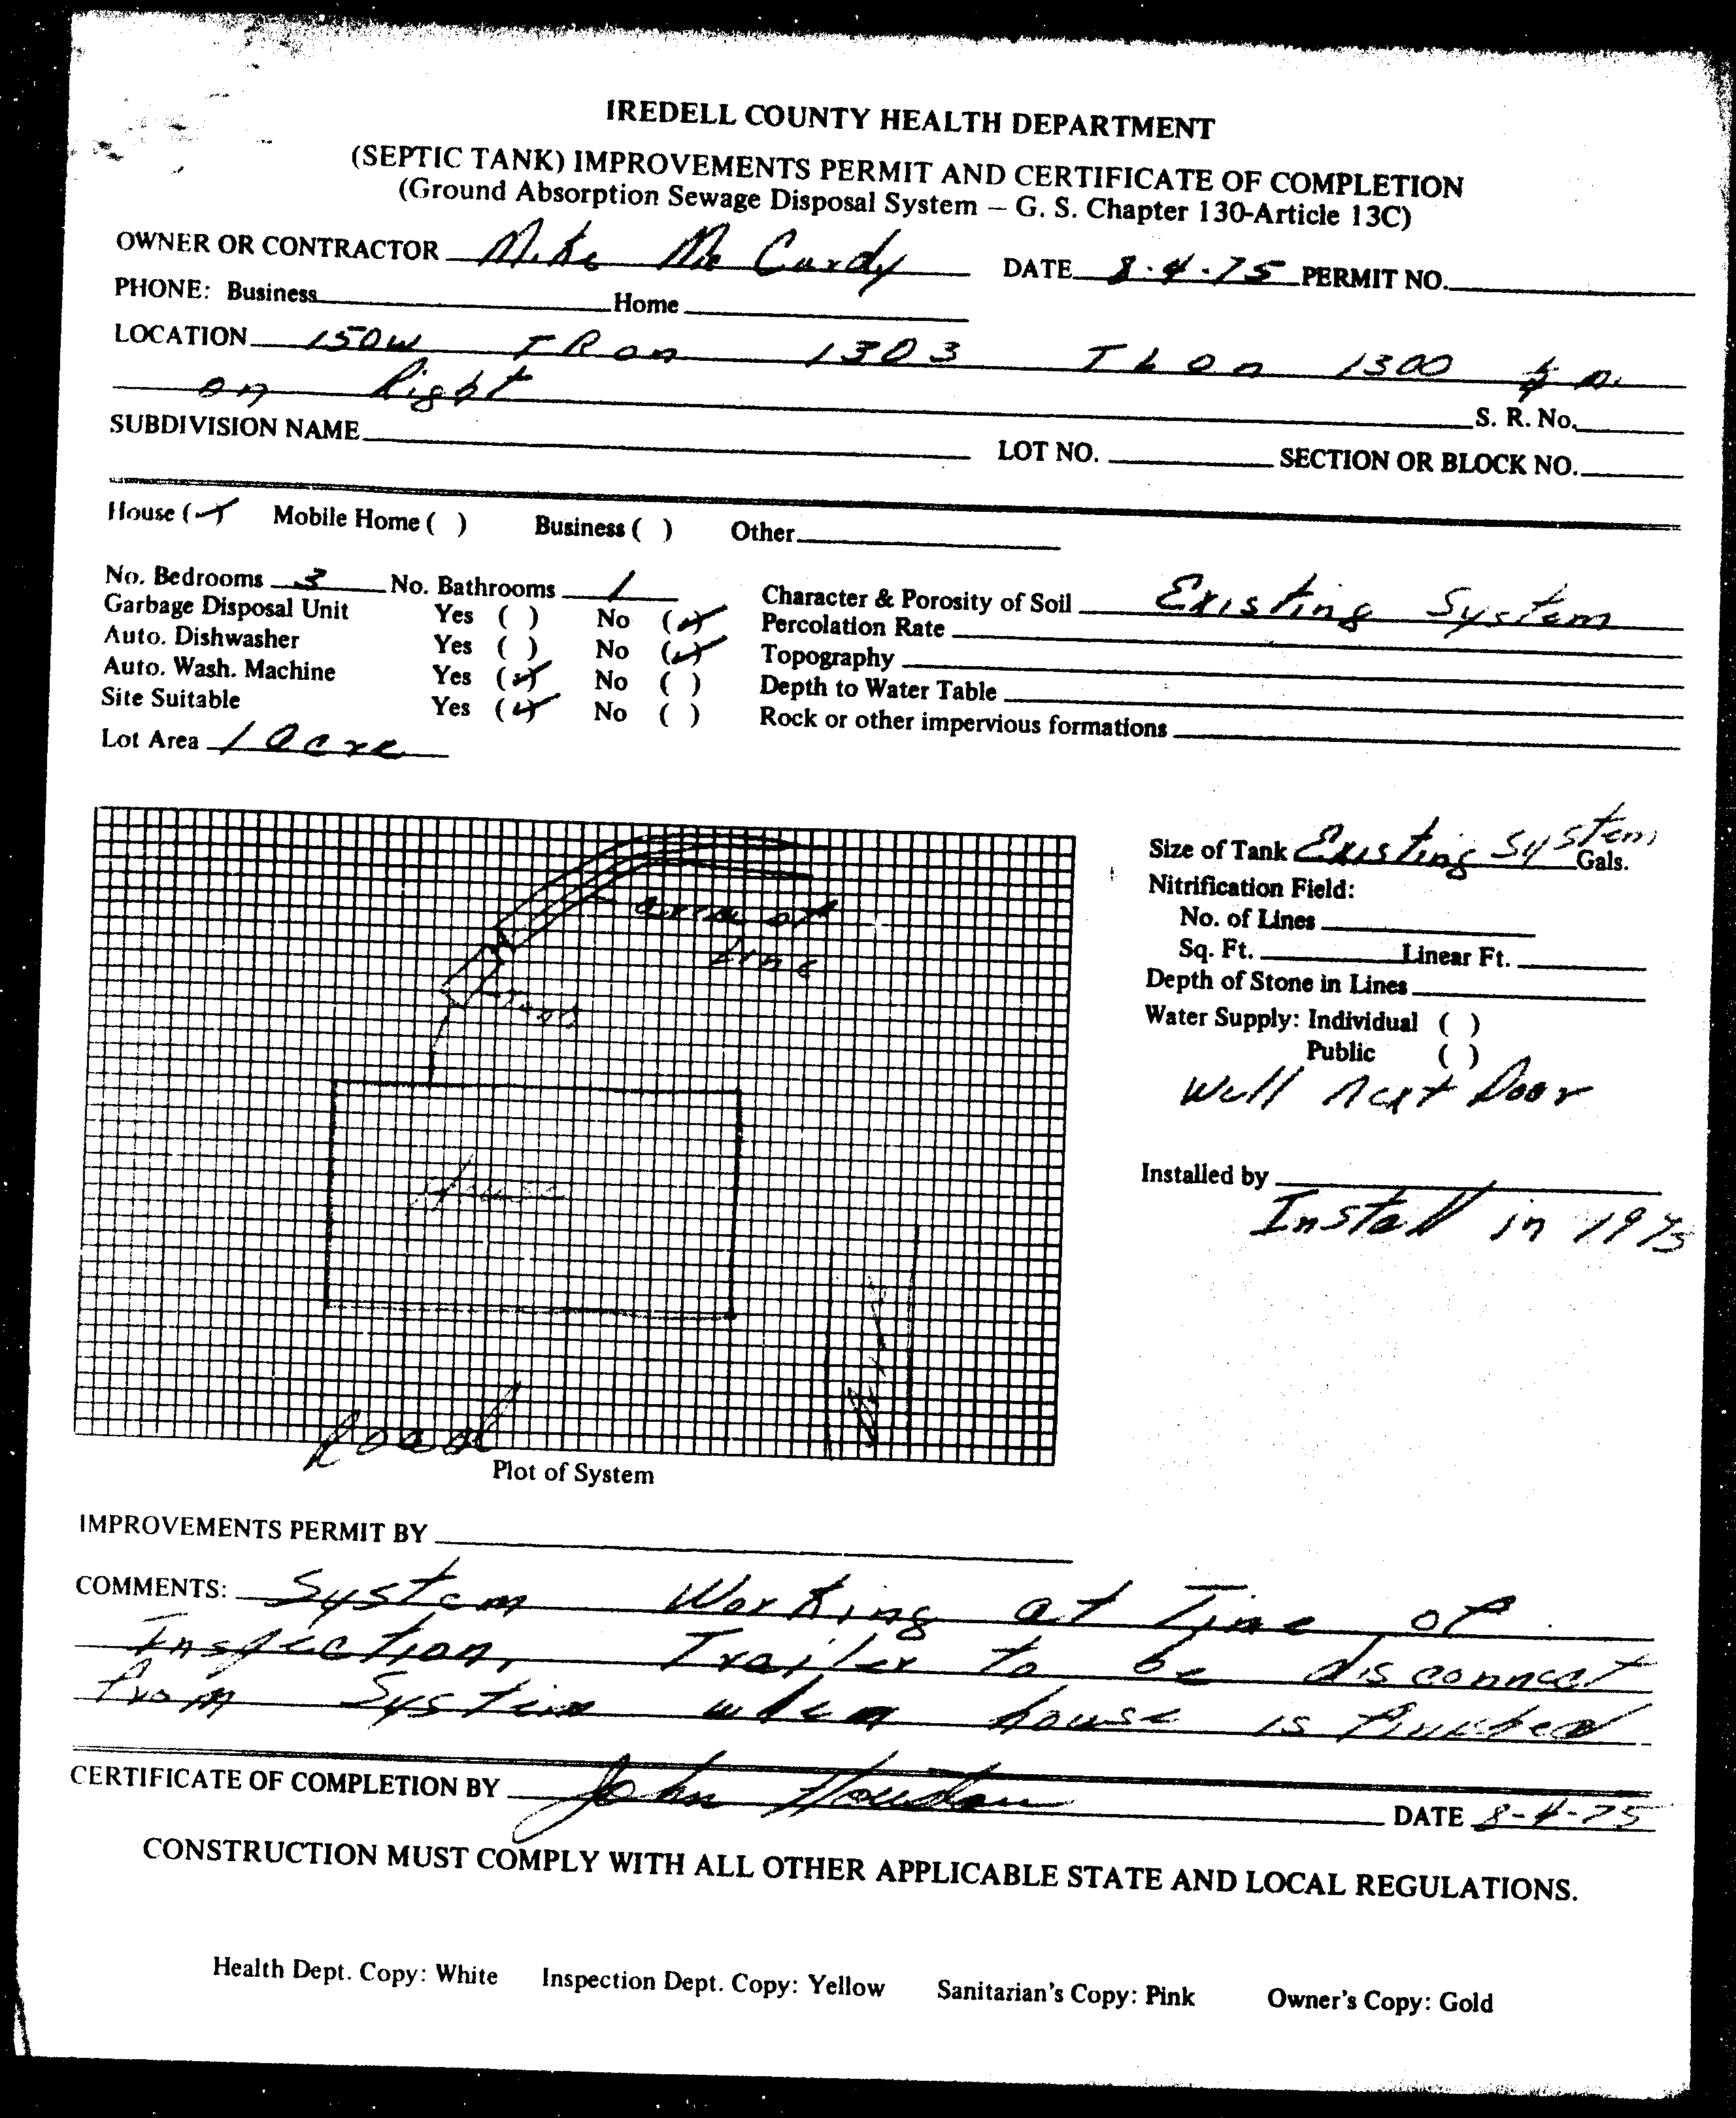 IREDELL COUNTY HEALTH DEPARTMENT
(SEPTIC TANK) IMPROVEMENTS PERMIT AND CERTIFICATE OF COMPLETION
(Ground Absorption Sewage Disposal System — G. S. Chapter 130-Article 13C)
OWNER OR CONTRACTOR Mike Mc Curdy DATE 8-4-75 PERMIT NO.
PHONE: Business Home
LOCATION 150W TR on 1303 TL on 1300 m.
on Right S. R. No.
SUBDIVISION NAME LOT NO. SECTION OR BLOCK NO.
House (✓) Mobile Home ( ) Business ( ) Other
No. Bedrooms 3 No. Bathrooms 1
Garbage Disposal Unit Yes ( ) No (✓)
Auto. Dishwasher Yes ( ) No (✓)
Auto. Wash. Machine Yes (✓) No ( )
Site Suitable Yes (✓) No ( )
Lot Area 1 acre
Character & Porosity of Soil Existing System
Percolation Rate
Topography
Depth to Water Table
Rock or other impervious formations
area of
Line
House
Road
Plot of System
Size of Tank Existing System Gals.
Nitrification Field:
No. of Lines
Sq. Ft. Linear Ft.
Depth of Stone in Lines
Water Supply: Individual ( )
Public ( )
Well next Door
Installed by
Install in 1973
IMPROVEMENTS PERMIT BY
COMMENTS: System Working at Time of
Inspection, Trailer to be disconnect
from System when house is finished
CERTIFICATE OF COMPLETION BY John DATE 8-4-75
CONSTRUCTION MUST COMPLY WITH ALL OTHER APPLICABLE STATE AND LOCAL REGULATIONS.
Health Dept. Copy: White Inspection Dept. Copy: Yellow Sanitarian's Copy: Pink Owner's Copy: Gold